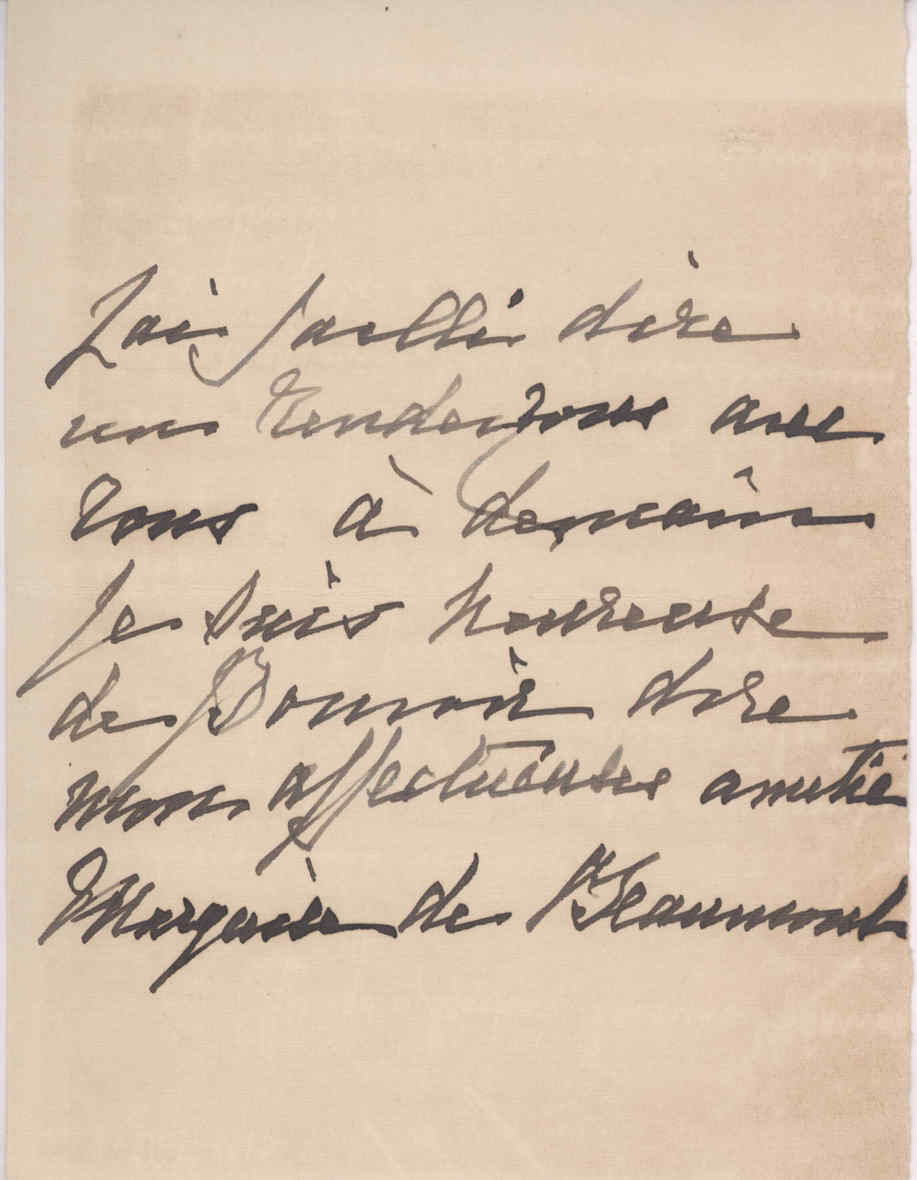 J'ai failli dire
un rendez vous avec
vous à demain
Je suis heureuse
de Pouvoir dire
mon affectueuse amitié
Marquise de Beaumont